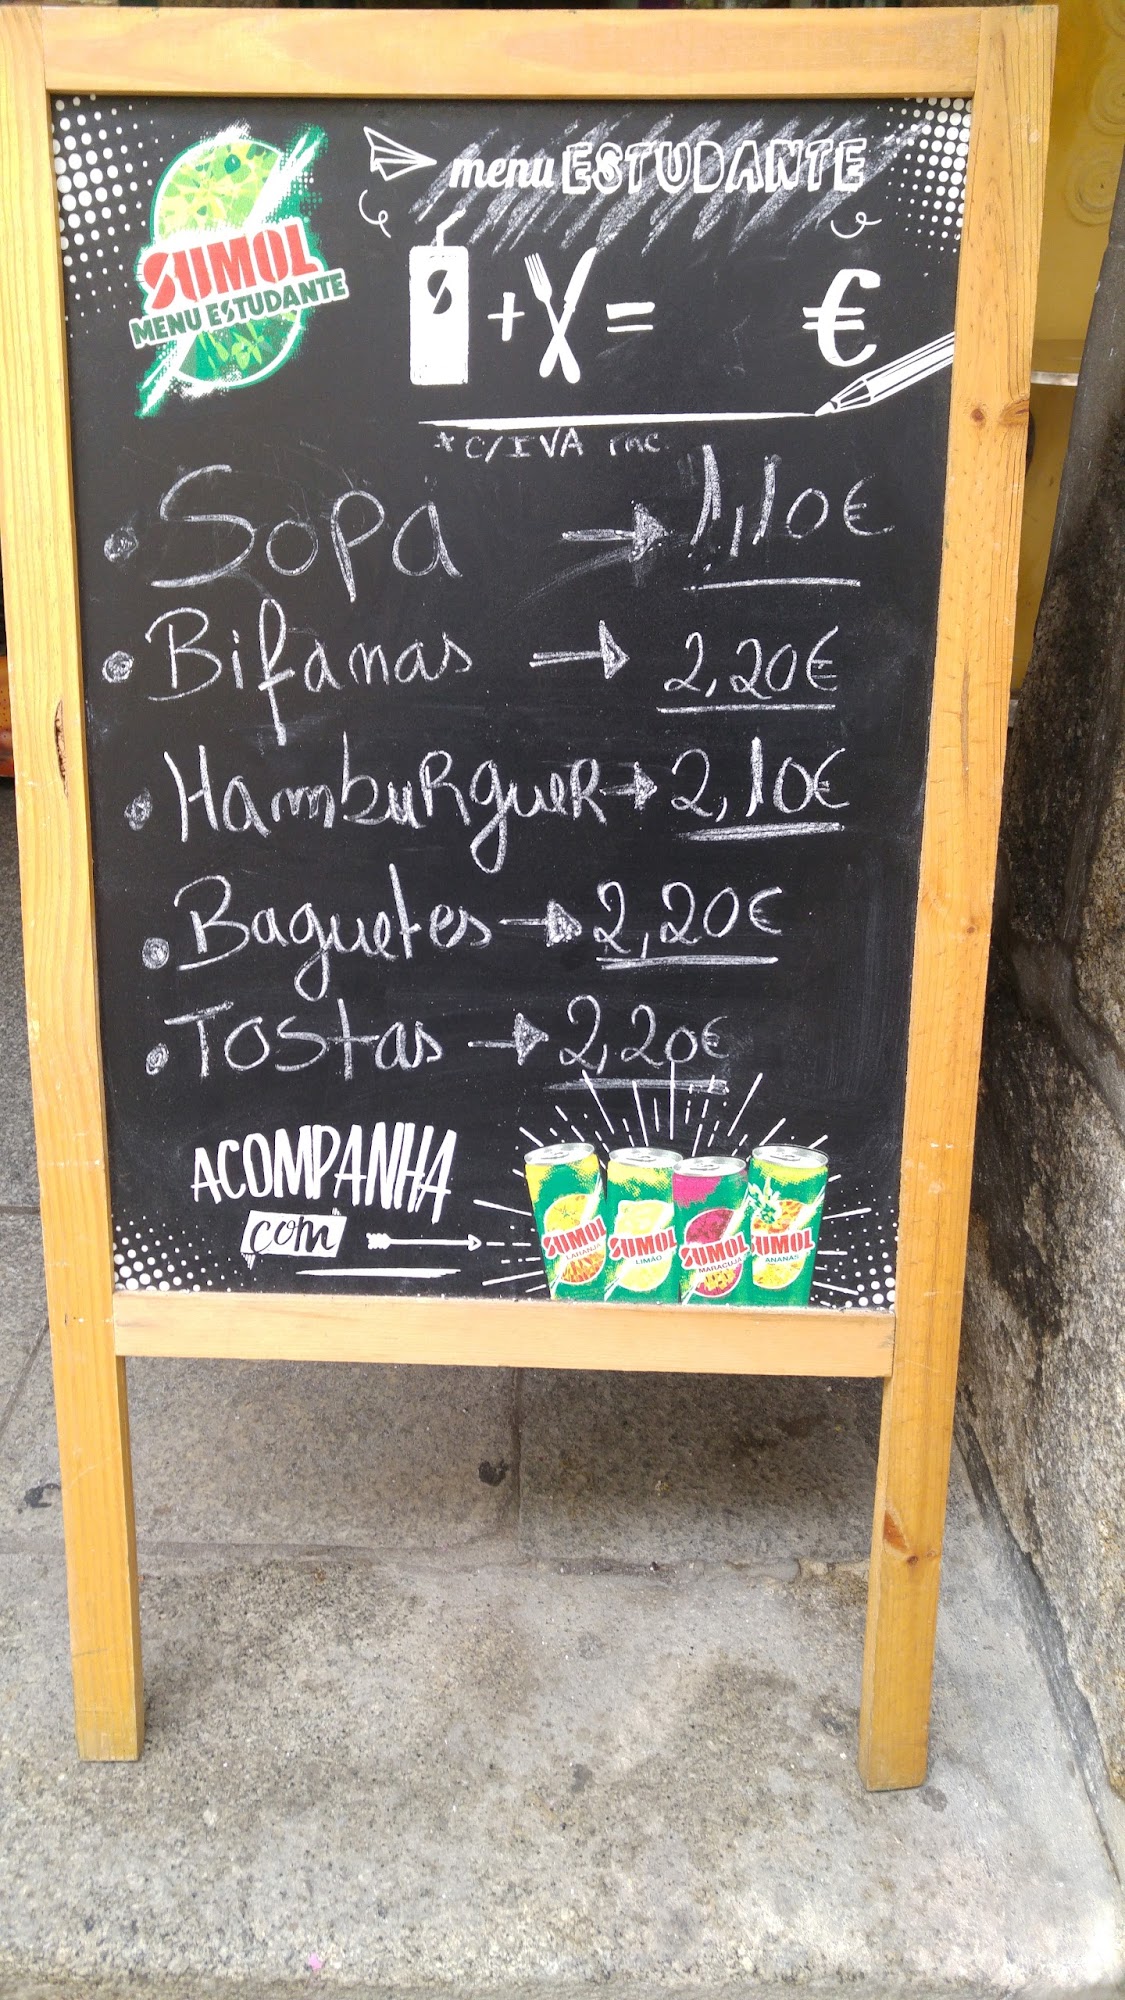 SUMOL
MENU ESTUDANTE
menu ESTUDANTE
+ = €
* C/IVA inc.
• Sopa → 1,10€
• Bifanas → 2,20€
• Hamburguer → 2,10€
• Baguetes → 2,20€
• Tostas → 2,20€
ACOMPANHA
com
SUMOL LARANJA
SUMOL LIMÃO
SUMOL MARACUJÁ
SUMOL ANANÁS